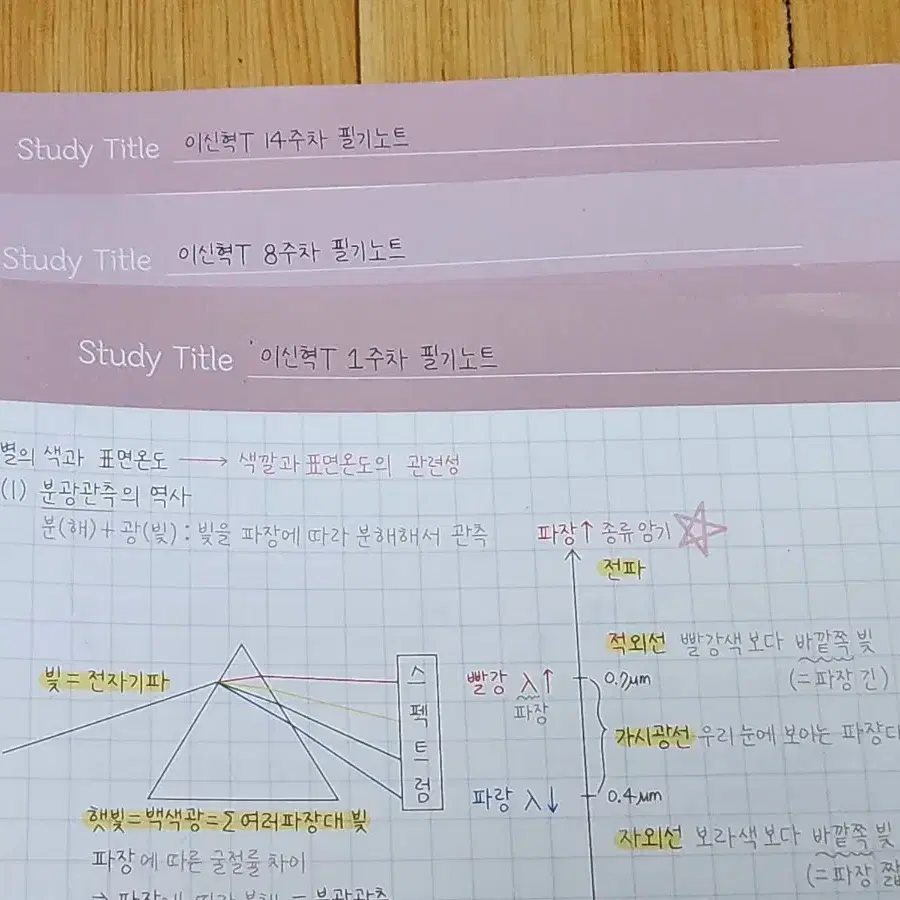 Study Title 이신혁T 14주차 필기노트
Study Title 이신혁T 8주차 필기노트
Study Title 이신혁T 1주차 필기노트
별의 색과 표면온도 → 색깔과 표면온도의 관련성
(1) 분광관측의 역사
분(해)+광(빛) : 빛을 파장에 따라 분해해서 관측
파장↑ 종류 암기
전파
적외선 빨강색보다 바깥쪽 빛
(=파장 긴)
빛=전자기파
스펙트럼
빨강 λ↑
파장
0.7μm
가시광선 우리눈에 보이는 파장대
파랑 λ↓
0.4μm
햇빛=백색광=Σ여러파장대 빛
자외선 보라색보다 바깥쪽 빛
(=파장 짧
파장에 따른 굴절률 차이
⇒ 파장에 따라 분해 = 분광관측